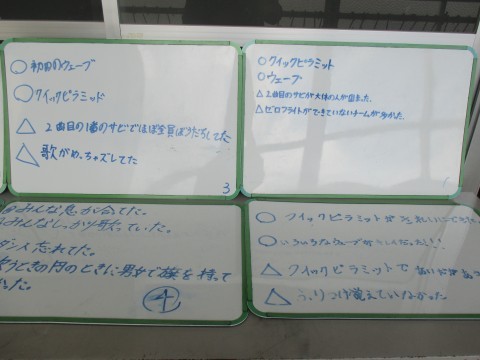 ○初回のウェーブ
○クイックピラミッド
△2曲目の1番のサビでほぼ全員ぼうだちしてた
△歌がめっちゃズレてた
3
○クイックピラミット
○ウェーブ
△2曲目のサビが大体の人が止また。
△ゼロフライトができていないチームが多かた。
みんな息が合てた。
みんなしっかり歌っていた。
忘れてた。
うときの円のときに男女で旗を持って
った。
4
○クイックピラミットがきれいにできた。
○いろいろなウェーブが
△クイックピラミットで
△ふりつけ覚えていなかった